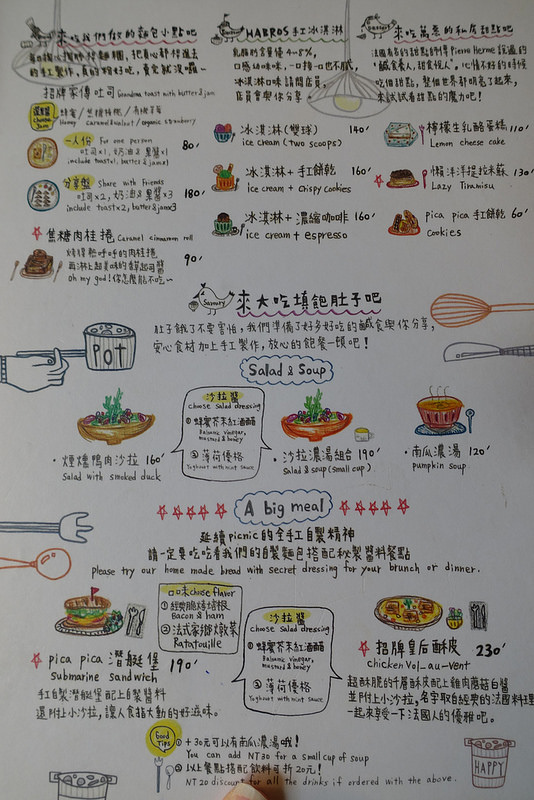 來吃我們做的麵包小點吧
招牌家傳吐司 Grandma toast with butter&jam
選擇醬
choose Jam
蜂蜜／焦糖核桃／有機草莓
Honey caramel&walnut / organic strawberry
一人份 For one person
吐司×1, 奶油&果醬×1
include toast×1, butter&jam×1
80'
分享盤 Share with Friends
吐司×2, 奶油&果醬×3
include toast×2, butter&jam×3
180'
焦糖肉桂捲 Caramel cinnamon roll
烤得熱呼呼的肉桂捲
再淋上超美味的香草起司醬
oh my god! 你怎麼能不吃~
90'
HABROS手工冰淇淋
乳脂肪含量僅4~8%,
口感綿咪咪,一口接一口也不膩
冰淇淋口味請問店員,
店員會與你分享
冰淇淋(雙球) 140'
ice cream (two scoops)
冰淇淋+手工餅乾 160'
ice cream + Crispy Cookies
冰淇淋+濃縮咖啡 160'
ice cream + espresso
來吃萬惡的私房甜點吧
法國有名的甜點的師傅Pierre Herme說過的
「鹹食養人,甜食悅人」。心情不好的時候
吃個甜點,整個世界都明亮了起來,
來試試看甜點的魔力吧!
檸檬生乳酪蛋糕 110'
Lemon cheese cake
懶洋洋提拉米蘇 130'
Lazy Tiramisu
pica pica 手工餅乾 60'
cookies
Savoury
來大吃填飽肚子吧
肚子餓了不要害怕,我們準備了好多好吃的鹹食與你分享,
安心食材加上手工製作,放心的飽餐一頓吧!
POT
Salad & Soup
・煙燻鴨肉沙拉 160'
Salad with smoked duck
沙拉醬
choose salad dressing
① 蜂蜜芥末紅酒醋
Balsamic vinegar, mustard & honey
② 薄荷優格
Yoghurt with mint sauce
・沙拉濃湯組合 190'
Salad & soup (small cup)
・南瓜濃湯 120'
pumpkin soup
A big meal
延續picnic的全手工自製精神
請一定要吃吃看我們的自製麵包搭配秘製醬料餐點
please try our home made bread with secret dressing for your brunch or dinner.
口味choose flavor
① 經典脆烤培根
Bacon & ham
② 法式家鄉燉菜
Ratatouille
沙拉醬
choose salad dressing
① 蜂蜜芥末紅酒醋
Balsamic vinegar, mustard & honey
② 薄荷優格
Yoghurt with mint sauce
pica pica 潛艇堡 190'
Submarine sandwich
手工自製潛艇堡配上自製醬料
還附上小沙拉,讓人食指大動的好滋味。
招牌皇后酥皮 230'
chicken Vol_au-vent
超酥脆的千層酥皮配上雞肉蘑菇白醬
並附上小沙拉,名字取自經典的法國料理
一起來享受一下法國人的優雅吧。
Good Tips
① +30元可以有南瓜濃湯哦!
You can add NT30 for a small cup of soup
② 以上餐點搭配飲料可折20元!
NT20 discount for all the drinks if ordered with the above.
HAPPY